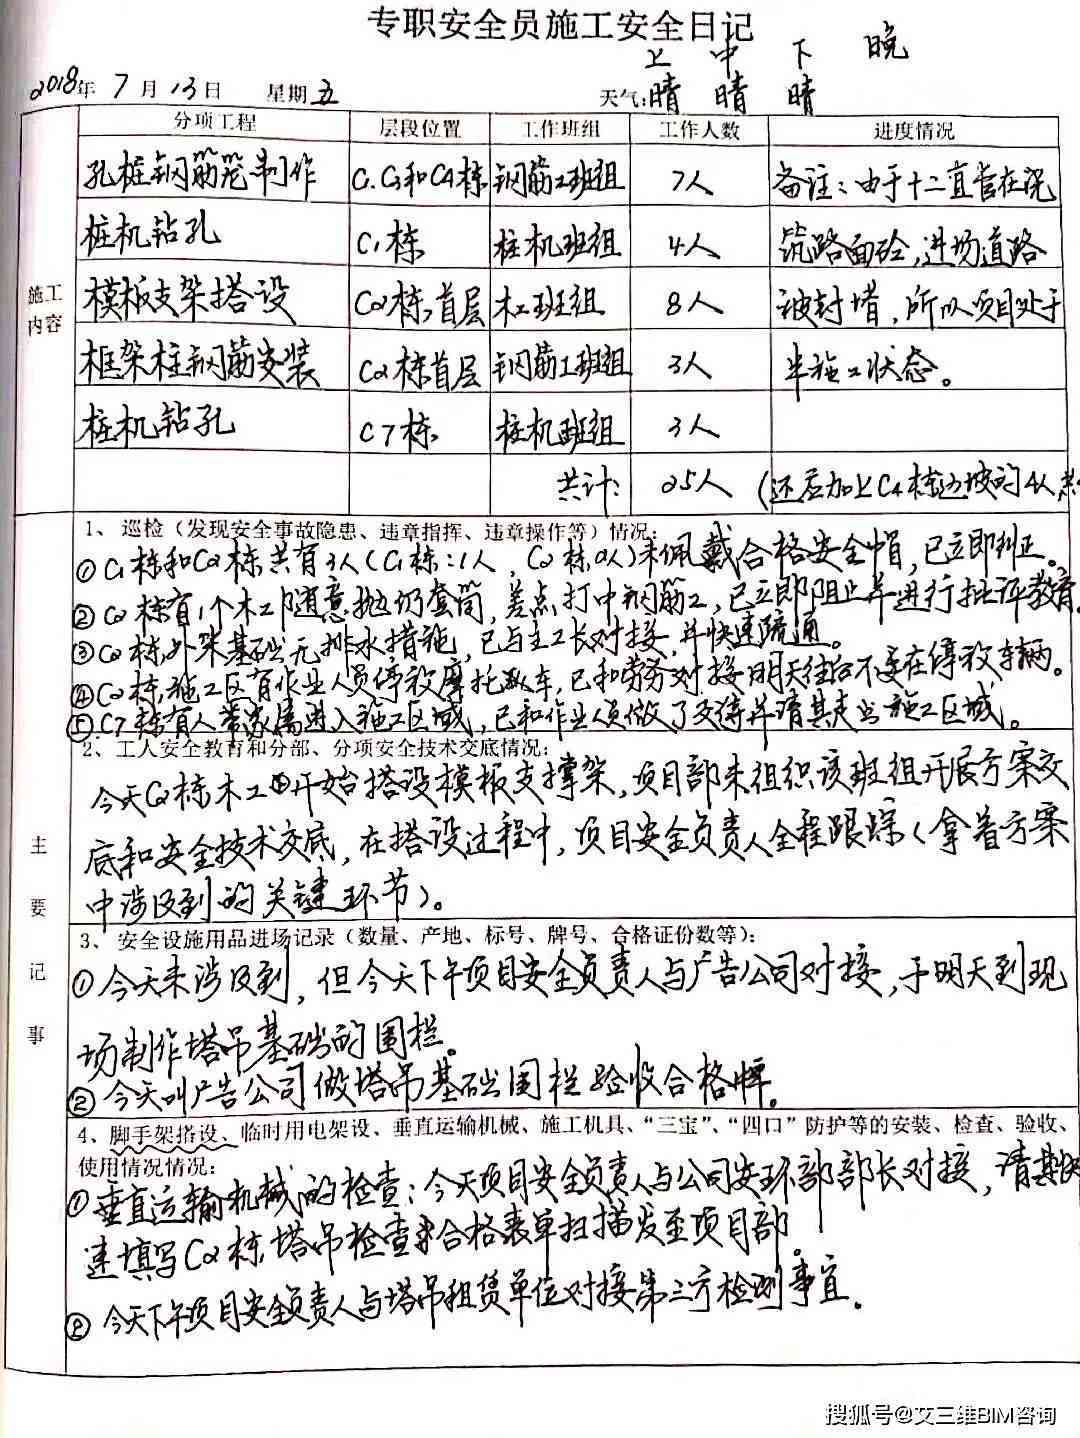 专职安全员施工安全日记
上 中 下 晚
2018年 7月 13日 星期五 天气:晴 晴 晴
分项工程 层段位置 工作班组 工作人数 进度情况
孔桩钢筋笼制作 C1、C3和C4栋 钢筋工班组 7人 备注：由于十二直管在浇
桩机钻孔 C1栋 桩机班组 4人 筑路面砼,进场道路
施工
内容
模板支架搭设 C2栋,首层 木工班组 8人 被封堵,所以项目处于
框架柱钢筋安装 C2栋首层 钢筋工班组 3人 半施工状态。
桩机钻孔 C7栋 桩机班组 3人
共计: 25人 (还应加上C4栋边坡的4人
1、巡检（发现安全事故隐患、违章指挥、违章操作等）情况:
①C1栋和C2栋共有3人(C1栋:1人,C2栋2人)未佩戴合格安全帽,已立即纠正。
②C2栋有1个木工随意抛扔套筒,差点打中钢筋工,已立即阻止并进行批评教育
③C2栋,外架基础无排水措施,已与主工长对接,并快速疏通。
④C2栋,施工区有作业人员停放摩托车,已和劳务对接明天往后不要在停放车辆。
⑤C7栋有人带家属进入施工区域,已和作业人员做了交待并请其走出施工区域。
2、工人安全教育和分部、分项安全技术交底情况:
今天C2栋木工开始搭设模板支撑架,项目部未组织该班组开展方案交
底和安全技术交底,在搭设过程中,项目安全负责人全程跟踪(拿着方案
中涉及到的关键环节)。
主
要
记
事
3、安全设施用品进场记录（数量、产地、标号、牌号、合格证份数等）:
①今天未涉及到,但今天下午项目安全负责人与广告公司对接,于明天到现
场制作塔吊基础的围栏。
②今天叫广告公司做塔吊基础围栏验收合格牌。
4、脚手架搭设、临时用电架设、垂直运输机械、施工机具、“三宝”、“四口”防护等的安装、检查、验收、
使用情况情况:
①垂直运输机械的检查:今天项目安全负责人与公司安环部部长对接,请其快
速填写C2栋,塔吊检查合格表单扫描发至项目部。
②今天下午项目安全负责人与塔吊租赁单位对接第三方检测事宜。
搜狐号@艾三维BIM咨询